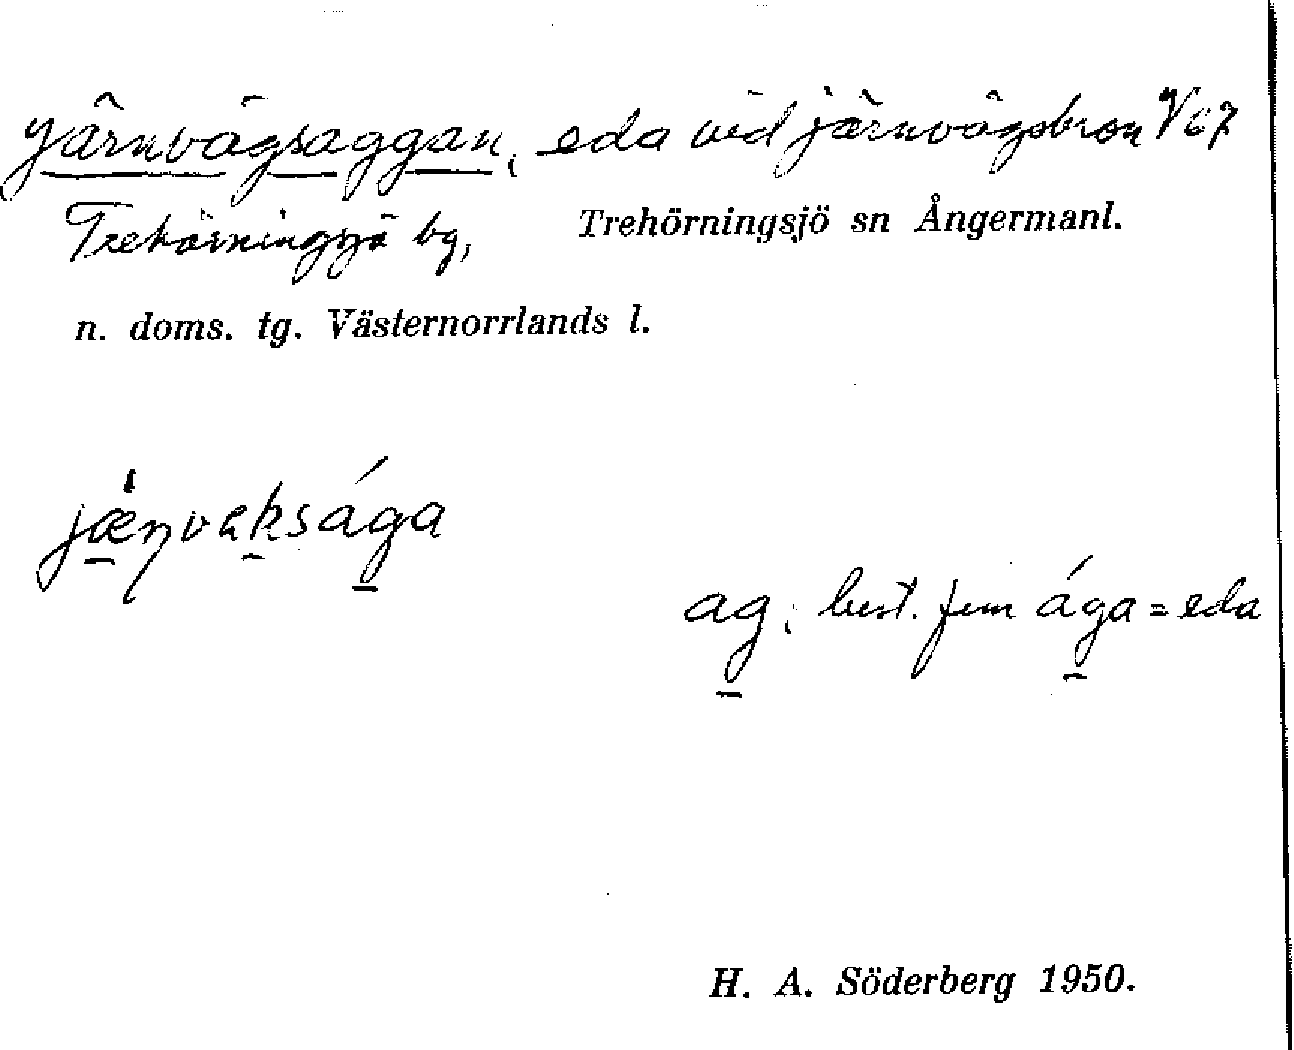 Järnvägsaggan, eda vid järnvägsbron V 67
Trehörningsjö bg, Trehörningsjö sn Ångermanl.
n. doms. tg. Västernorrlands l.
jæṇvaksága
ag, best. fem ága = eda
H. A. Söderberg 1950.